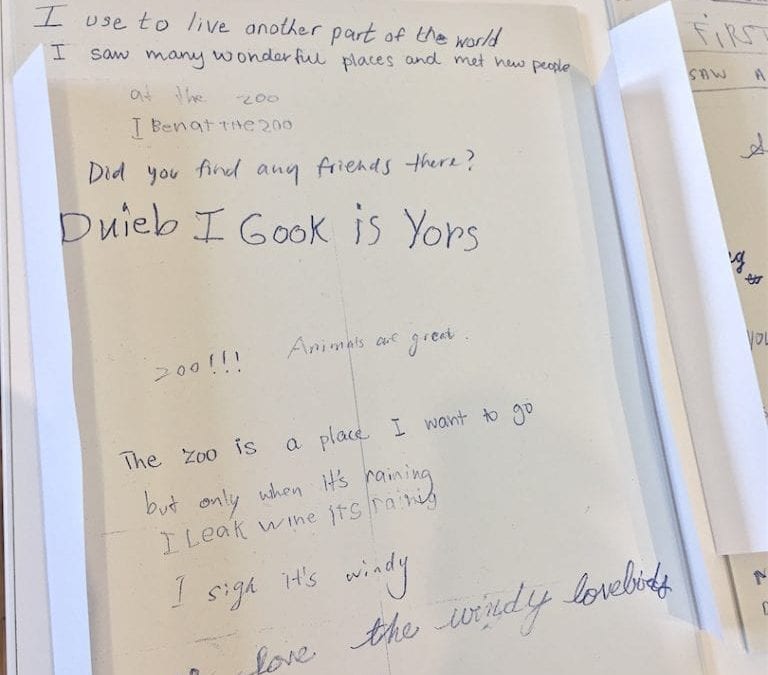 I use to live another part of the world
I saw many wonderful places and met new people
at the zoo
I Ben at THE zoo
Did you find any friends there?
Duieb I Gook is Yors
zoo!!! Animals are great.
The zoo is a place I want to go
but only when it's raining
I Leak wine its rainig
I sigh it's windy
love the windy lovebirds
FIRST
SAW A